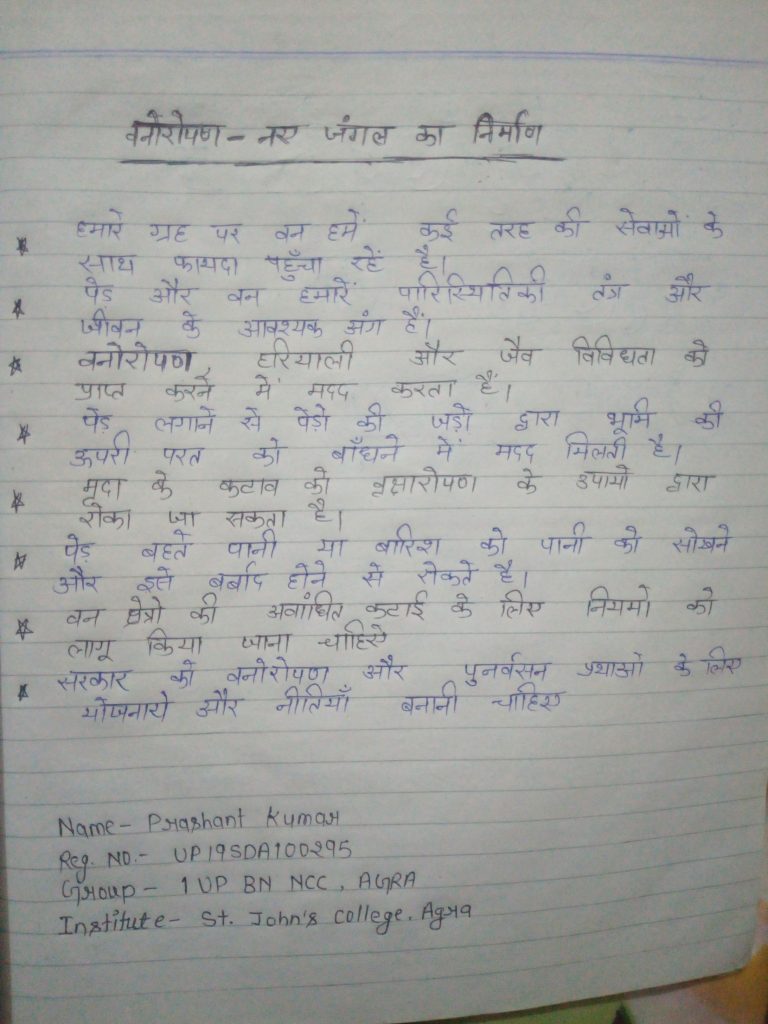 वनोरोपण - नए जंगल का निर्माण
हमारे ग्रह पर वन हमें कई तरह की सेवाओं के
साथ फायदा पहुँचा रहें है।
पेड और वन हमारें पारिस्थितिकी तंत्र और
जीवन के आवश्यक अंग हैं।
वनोरोपण हरियाली और जैव विविधता को
प्राप्त करने में मदद करता हैं।
पेड़ लगाने से पेड़ो की जड़ों द्वारा भूमि की
ऊपरी परत को बाँधने में मदद मिलती है।
मृदा के कटाव को वृक्षारोपण के उपायो द्वारा
रोका जा सकता है।
पेड़ बहते पानी या बारिश को पानी को सोखने
और इसे बर्बाद होने से रोकते है।
वन क्षेत्रो की अवांछित कटाई के लिए नियमो को
लागू किया जाना चाहिऐ
सरकार को वनोरोपण और पुनर्वसन प्रथाओं के लिए
योजनाये और नीतियाँ बनानी चाहिए
Name - Prashant Kumar
Reg. NO. - UP19SDA100295
Group - 1 UP BN NCC, AGRA
Institute - St. John's College, Agra